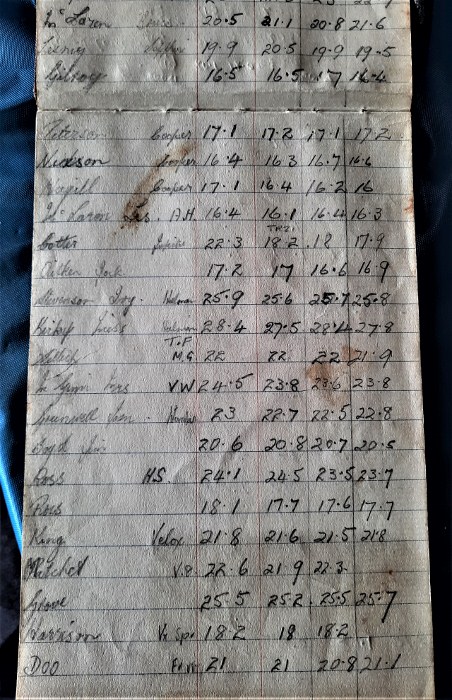 Mc Laren 20.5 21.1 20.8 21.6
19.9 20.5 19.9 19.5
Gilroy 16.5 16.5 17 16.4
Peterson Cooper 17.1 17.2 17.1 17.2
Nickson Cooper 16.4 16.3 16.7 16.6
Magill Cooper 17.1 16.4 16.2 16
Mc Laren Les. A.H. 16.4 16.1 16.4 16.3
TRZ1
Cotter 22.3 18.2 .18 17.9
Aitken Jock 17.2 17 16.6 16.9
Stevenson Holman 25.9 25.6 25.7 25.8
Kirby Holman 28.4 27.5 28.4 27.8
T.F
M.G 22 22 22 21.9
V.W 24.5 23.8 23.6 23.8
Humber 23 22.7 22.5 22.8
Jim 20.6 20.8 20.7 20.5
Ross H.S. 24.1 24.5 23.5 23.7
Ross 18.1 17.7 17.6 17.7
King Velox 21.8 21.6 21.5 21.8
Mitchel V.8 22.6 21.9 22.3
Glove 25.5 25.2 25.5 25.7
Harrison V8 Spe 18.2 18 18.2
Doo 21 21 20.8 21.1